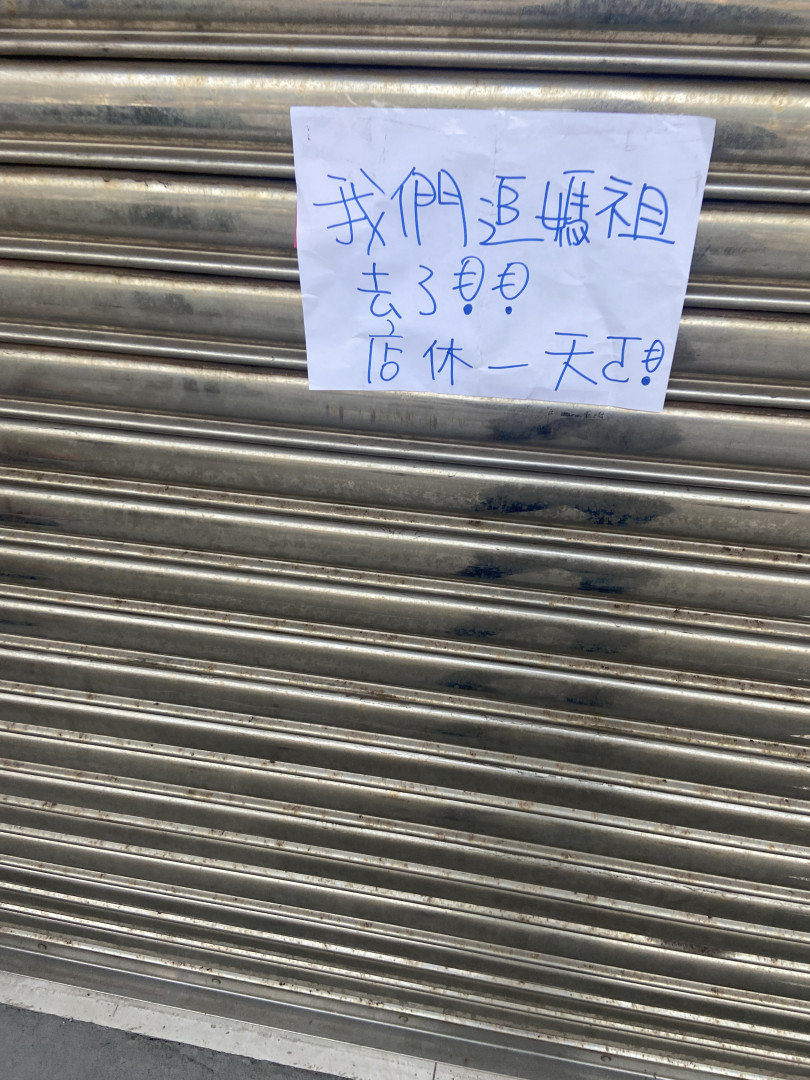 我們追媽祖
去了!!
店休一天ㄛ!